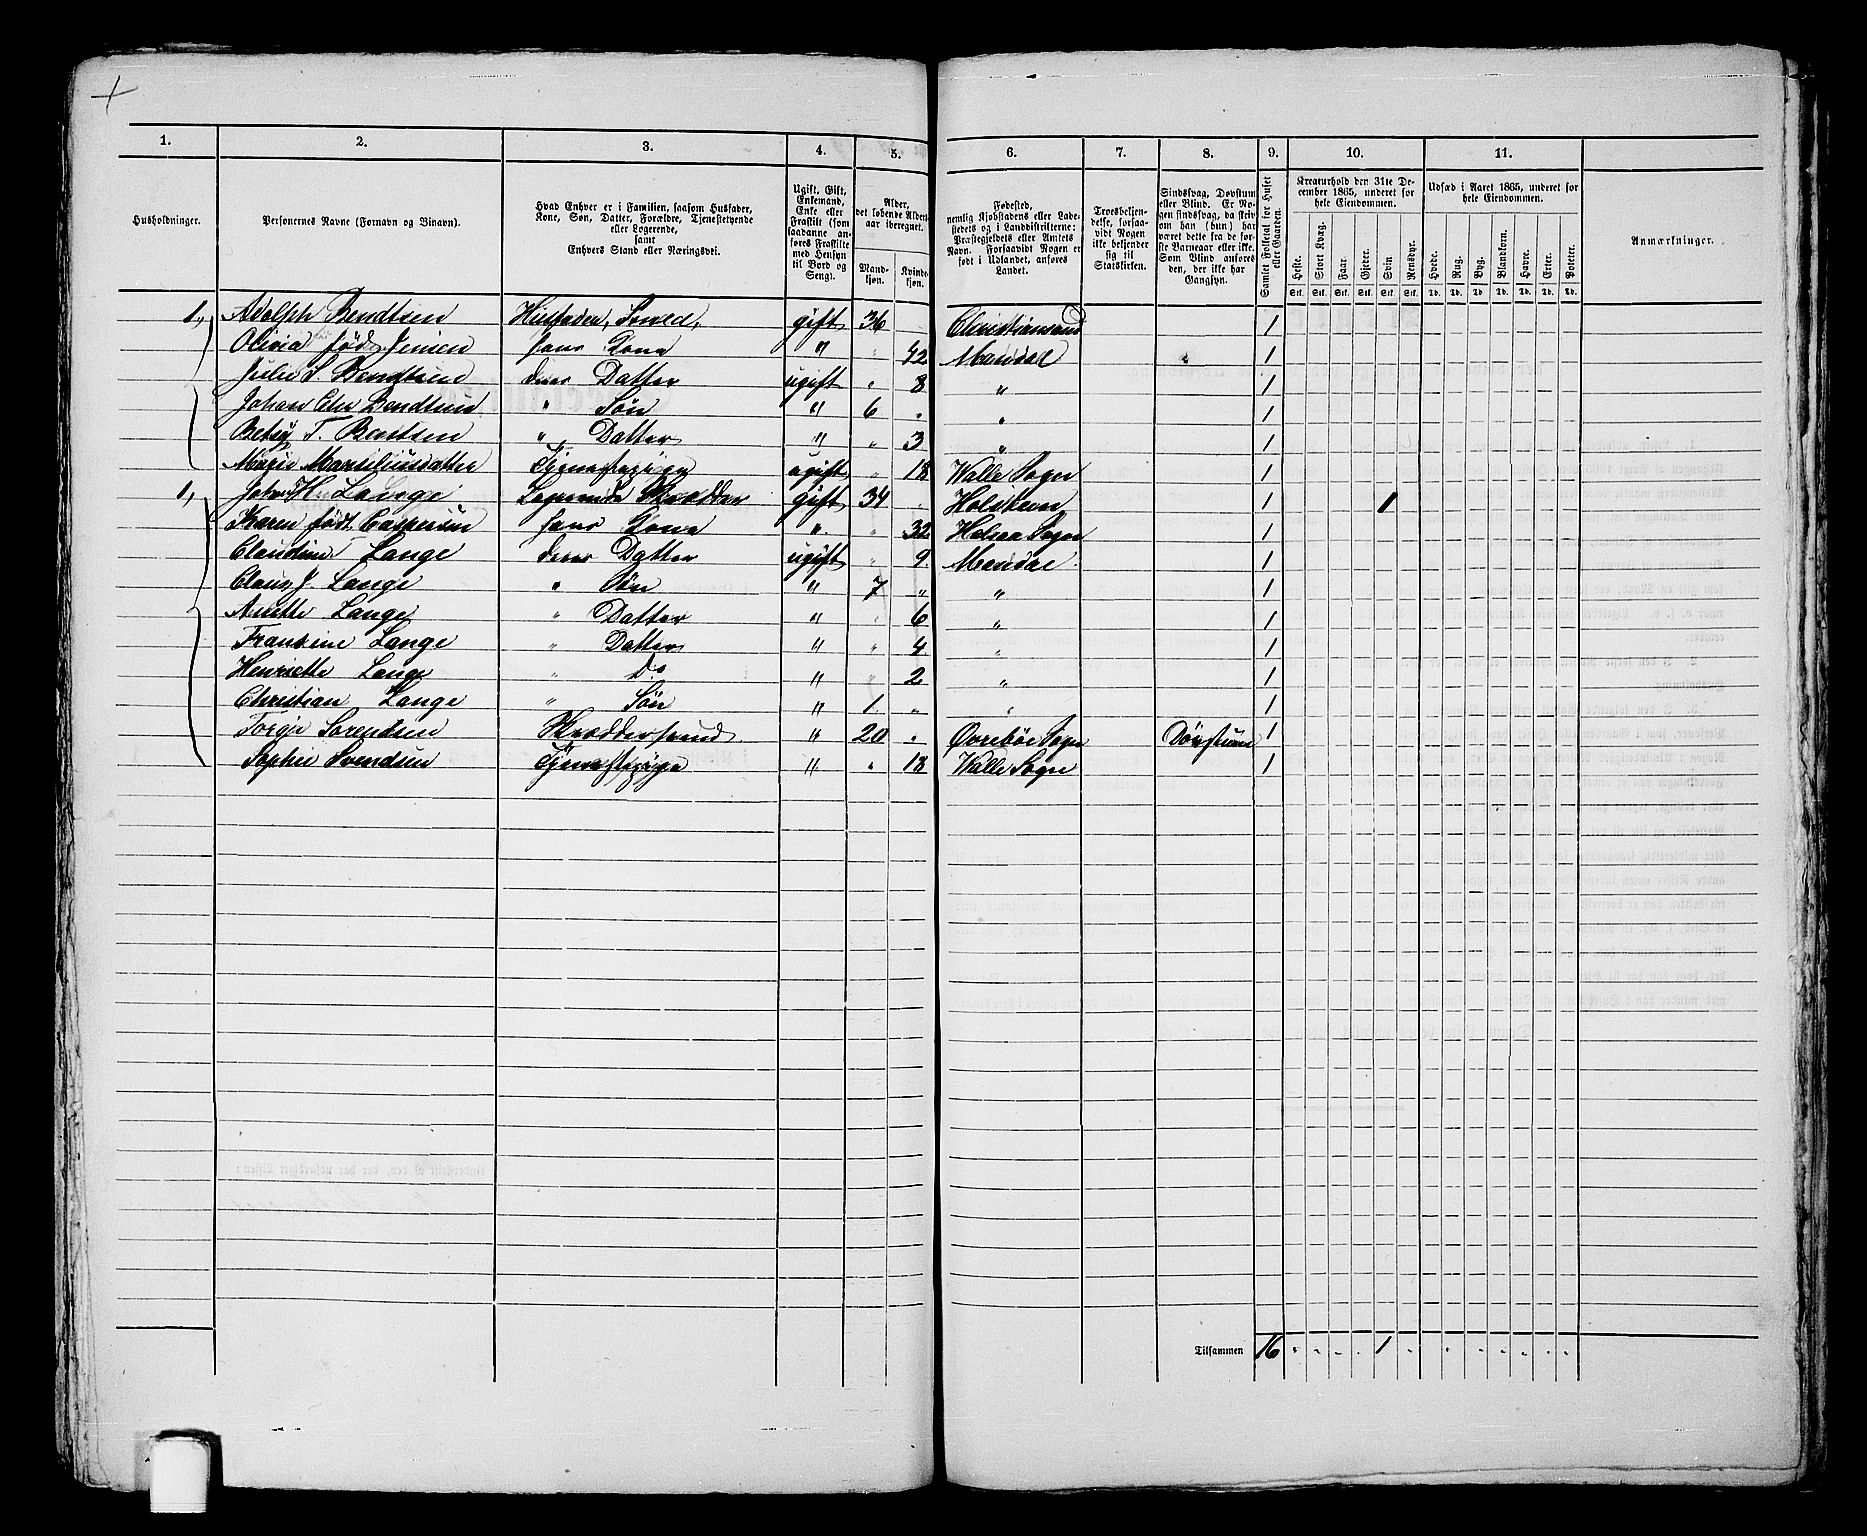 1. 2. 3. 4. 5. 6. 7. 8. 9. 10. 11.
Husholdninger.
Personernes Navne (Fornavn og Binavn).
Hvad Enhver er i Familien, saasom Husfader, Kone, Søn, Datter, Forældre, Tjenestetyende eller Logerende, samt Enhvers Stand eller Næringsvei.
Ugift, Gift, Enkemand, Enke eller Fraskilt (som saadanne anføres Fraskilte med Hensyn til Bord og Seng).
Alder, det løbende Aldersaar iberegnet.
Mandkjøn. Kvindekjøn.
Fødested, nemlig Kjøbstadens eller Ladestedets og i Landdistrikterne: Præstegjeldets eller Amtets Navn. Forsaavidt Nogen er født i Udlandet, anføres Landet.
Troesbekjendelse, forsaavidt Nogen ikke bekjender sig til Statskirken.
Sindssvag, Døvstum eller Blind. Er Nogen sindssvag, da skriv om han (hun) har været dette fra de første Barneaar eller ikke. Som Blind anføres den, der ikke har Gangsyn.
Samlet Folketal for Huset eller Gaarden.
Kreaturhold den 31te December 1865, underet for hele Eiendommen.
Heste. Stort Kvæg. Faar. Gjeder. Svin. Rensdyr.
Stk. Stk. Stk. Stk. Stk. Stk.
Udsæd i Aaret 1865, underet for hele Eiendommen.
Hvede. Rug. Byg. Blandkorn. Havre. Erter. Poteter.
Td. Td. Td. Td. Td. Td. Td.
Anmærkninger.
1., Adolph Bendtsen Husfader, gift 36 Christiansand 1
Olivia født Jensen Hans Kone " " 42 Mandal " 1
Julie S. Bendtsen deres Datter ugift " 8 " 1
Johan Bendtsen " Søn " 6 " " 1
Betsy T. Bentsen " " Datter " " 3 " 1
Marie Marsiliusdatter Tjenestepige ugift " 18 Walle Sogn 1
1, Johan H. Lange Logerende Skrædder gift 34 " Holsteen 1 1
Karen født Caspersen hans Kone " " 32 Halsaa Sogn 1
Claudine Lange deres Datter ugift " 9 Mandal 1
Claus J. Lange " Søn " 7 " " 1
Anette Lange " Datter " " 6 " 1
Fransine Lange " Datter " " 4 " 1
Henriette Lange " Do " " 2 " 1
Christian Lange " Søn " 1 " " 1
Torgje Sorendsen Skræddersvend " 20 " Øvrebøe Sogn Døvstum 1
Sophie Svendsen Tjenestepige " " 18 Walle Sogn 1
Tilsammen 16 " " " " 1 " " " " " " " "